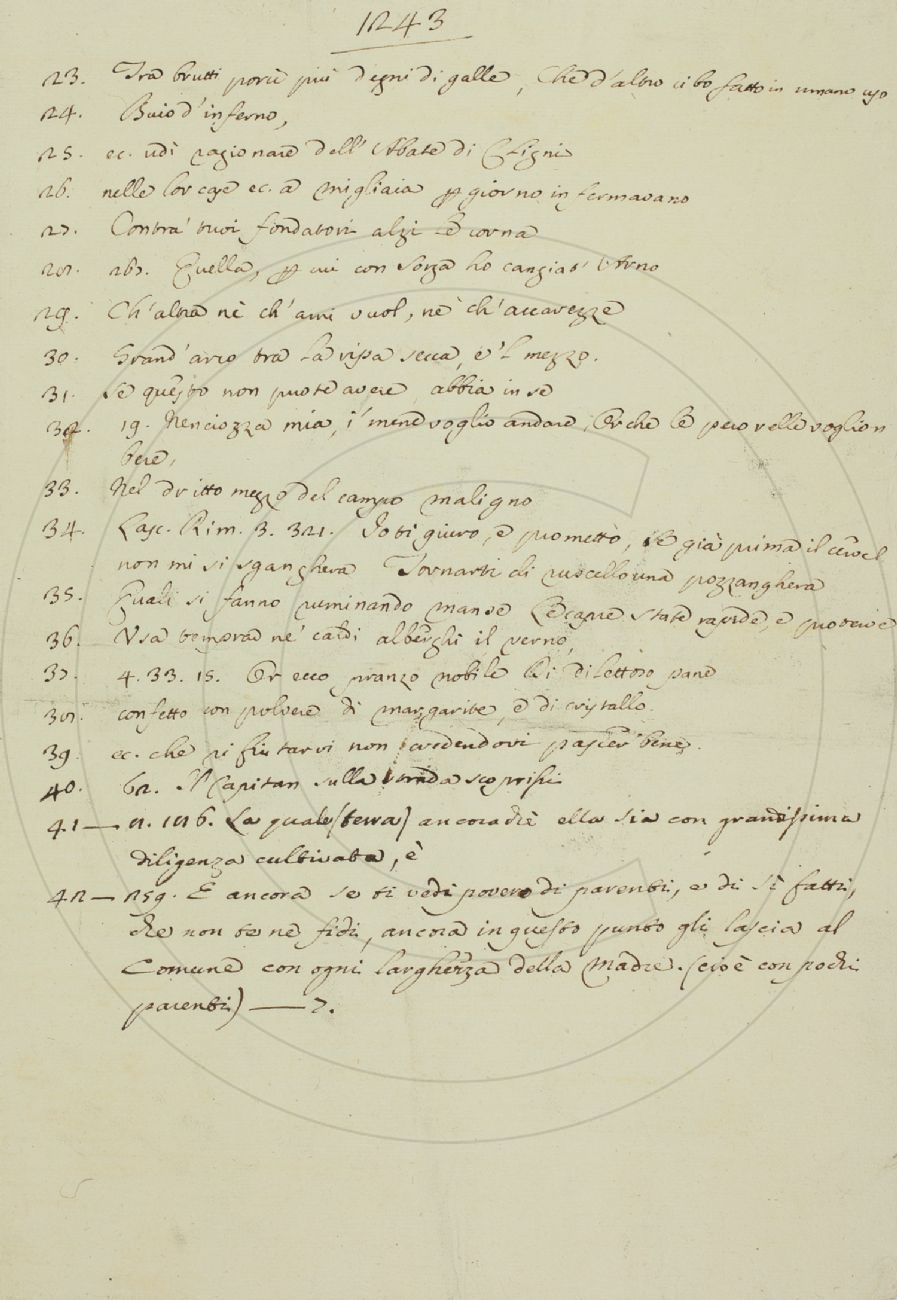 1243
23. Tra brutti porci più degni di galle, Che d'altro cibo fatto in umano uso
24. Buio d'inferno,
25. ec. udì ragionare dell'Abate di Clignì
26. nelle lor case ec. a migliaia p giorno infermavano
27. Contra' tuoi fondatori alzi le corna
28. 267. Quella, p cui con Sorga ho cangiat' Arno
29. Ch'altra nè ch'ami vuol, nè ch'accarezze
30. Grand'arco tra la ripa secca, e'l mezzo.
31. Se questo non puote avere, abbia in se
32. 19. Nenciozza mia, i' mene voglio andare, Or che le pecorelle voglion
bere,
33. Nel dritto mezzo del campo maligno
34. Lasc. Rim. 3. 321. Io ti giuro, e prometto, se già prima il cervel
non mi si sganghera Tornarti di ruscello una pozzanghera
35. Quali si fanno ruminando manse Le capre state rapide, e proterve
36. Usa temprar ne' caldi alberghi il verno,
37. 4. 33. 15. Or ecco pranzo nobile Di dilettoso pane
38. confetto con polvere di margarite, e di cristallo.
39. ec. che rifiutarvi non credendovi pascer bene.
40. 62. Il Capitan sulla strada scoprissi
41 — 2. 126. La quale (terra) ancorachè ella sia con grandissima
diligenza cultivata, è
42 — 259. E ancora se ti vedi povero di parenti, e di sì fatti,
che non te ne fidi, ancora in questo punto gli lascia al
Comune con ogni larghezza della Madre. (cioè con pochi
parenti) — 7.